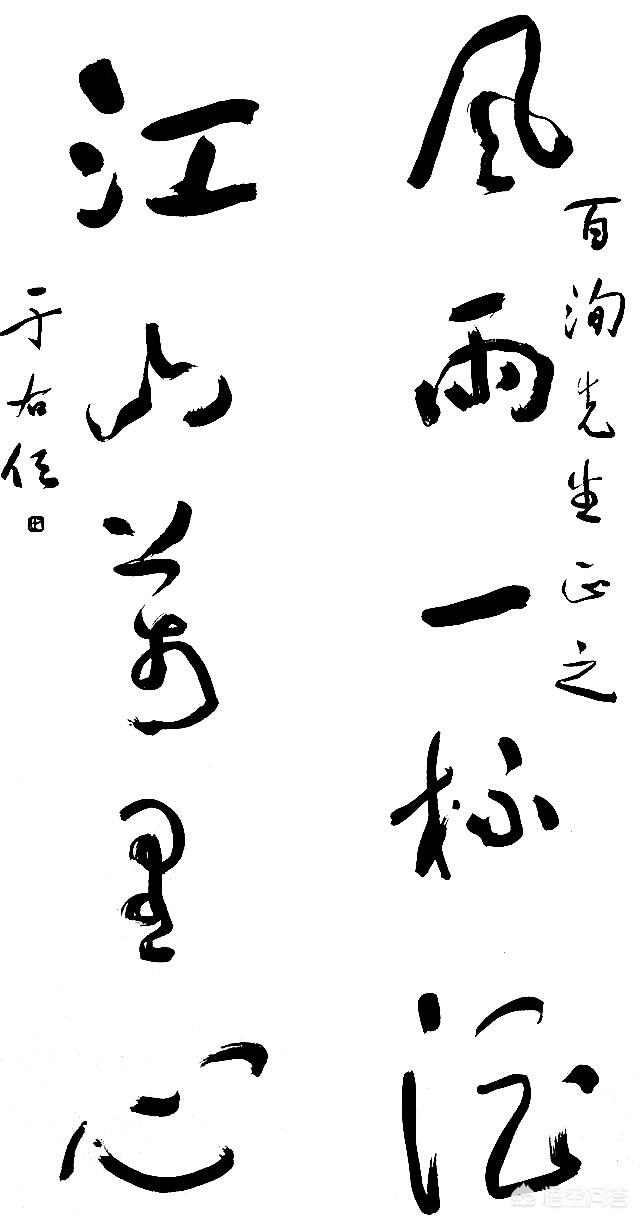 百洵先生正之
風雨一杯酒
江山萬里心
于右任
悟空问答